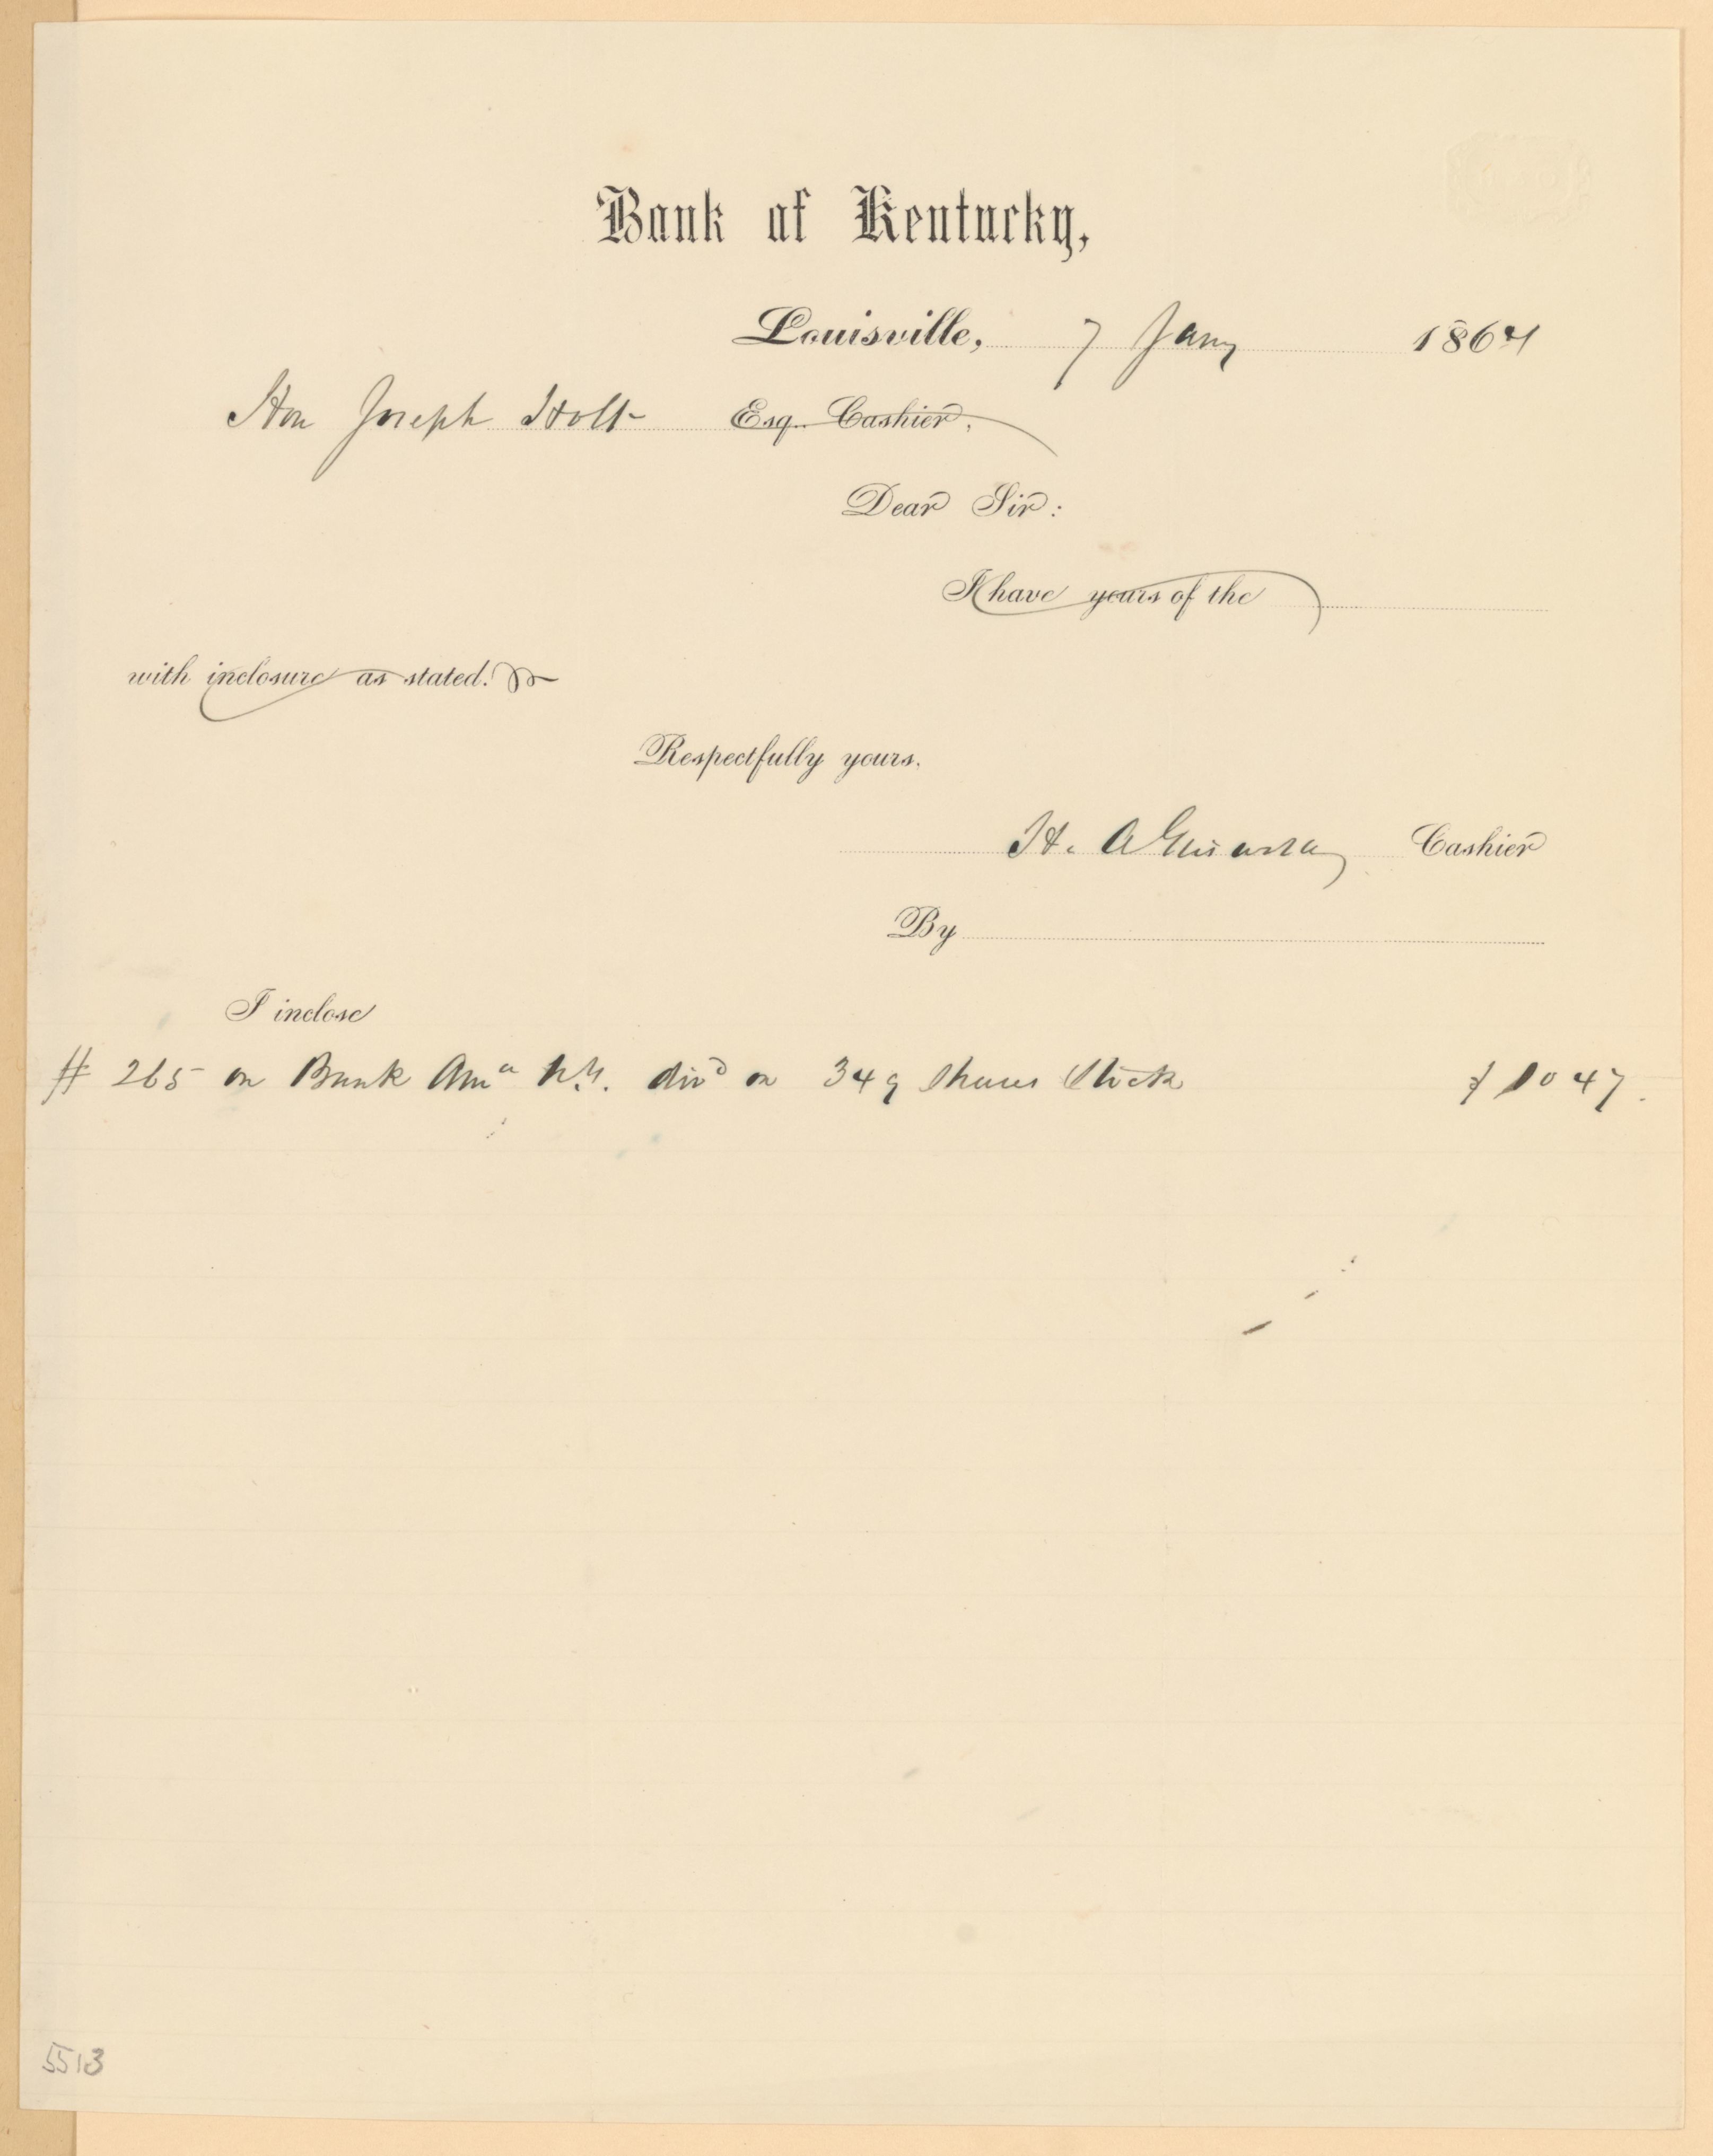 Bank of Kentucky,
Louisville, 7 Jany 1864
Hon Joseph Holt Esq. Cashier,
Dear Sir:
I have yours of the
with inclosure as stated.
Respectfully yours.
H. A Cashier
By
I inclose
# 265 on Bank Ama N.Y. divd on 349 Shares Stock $ 1047.
5513